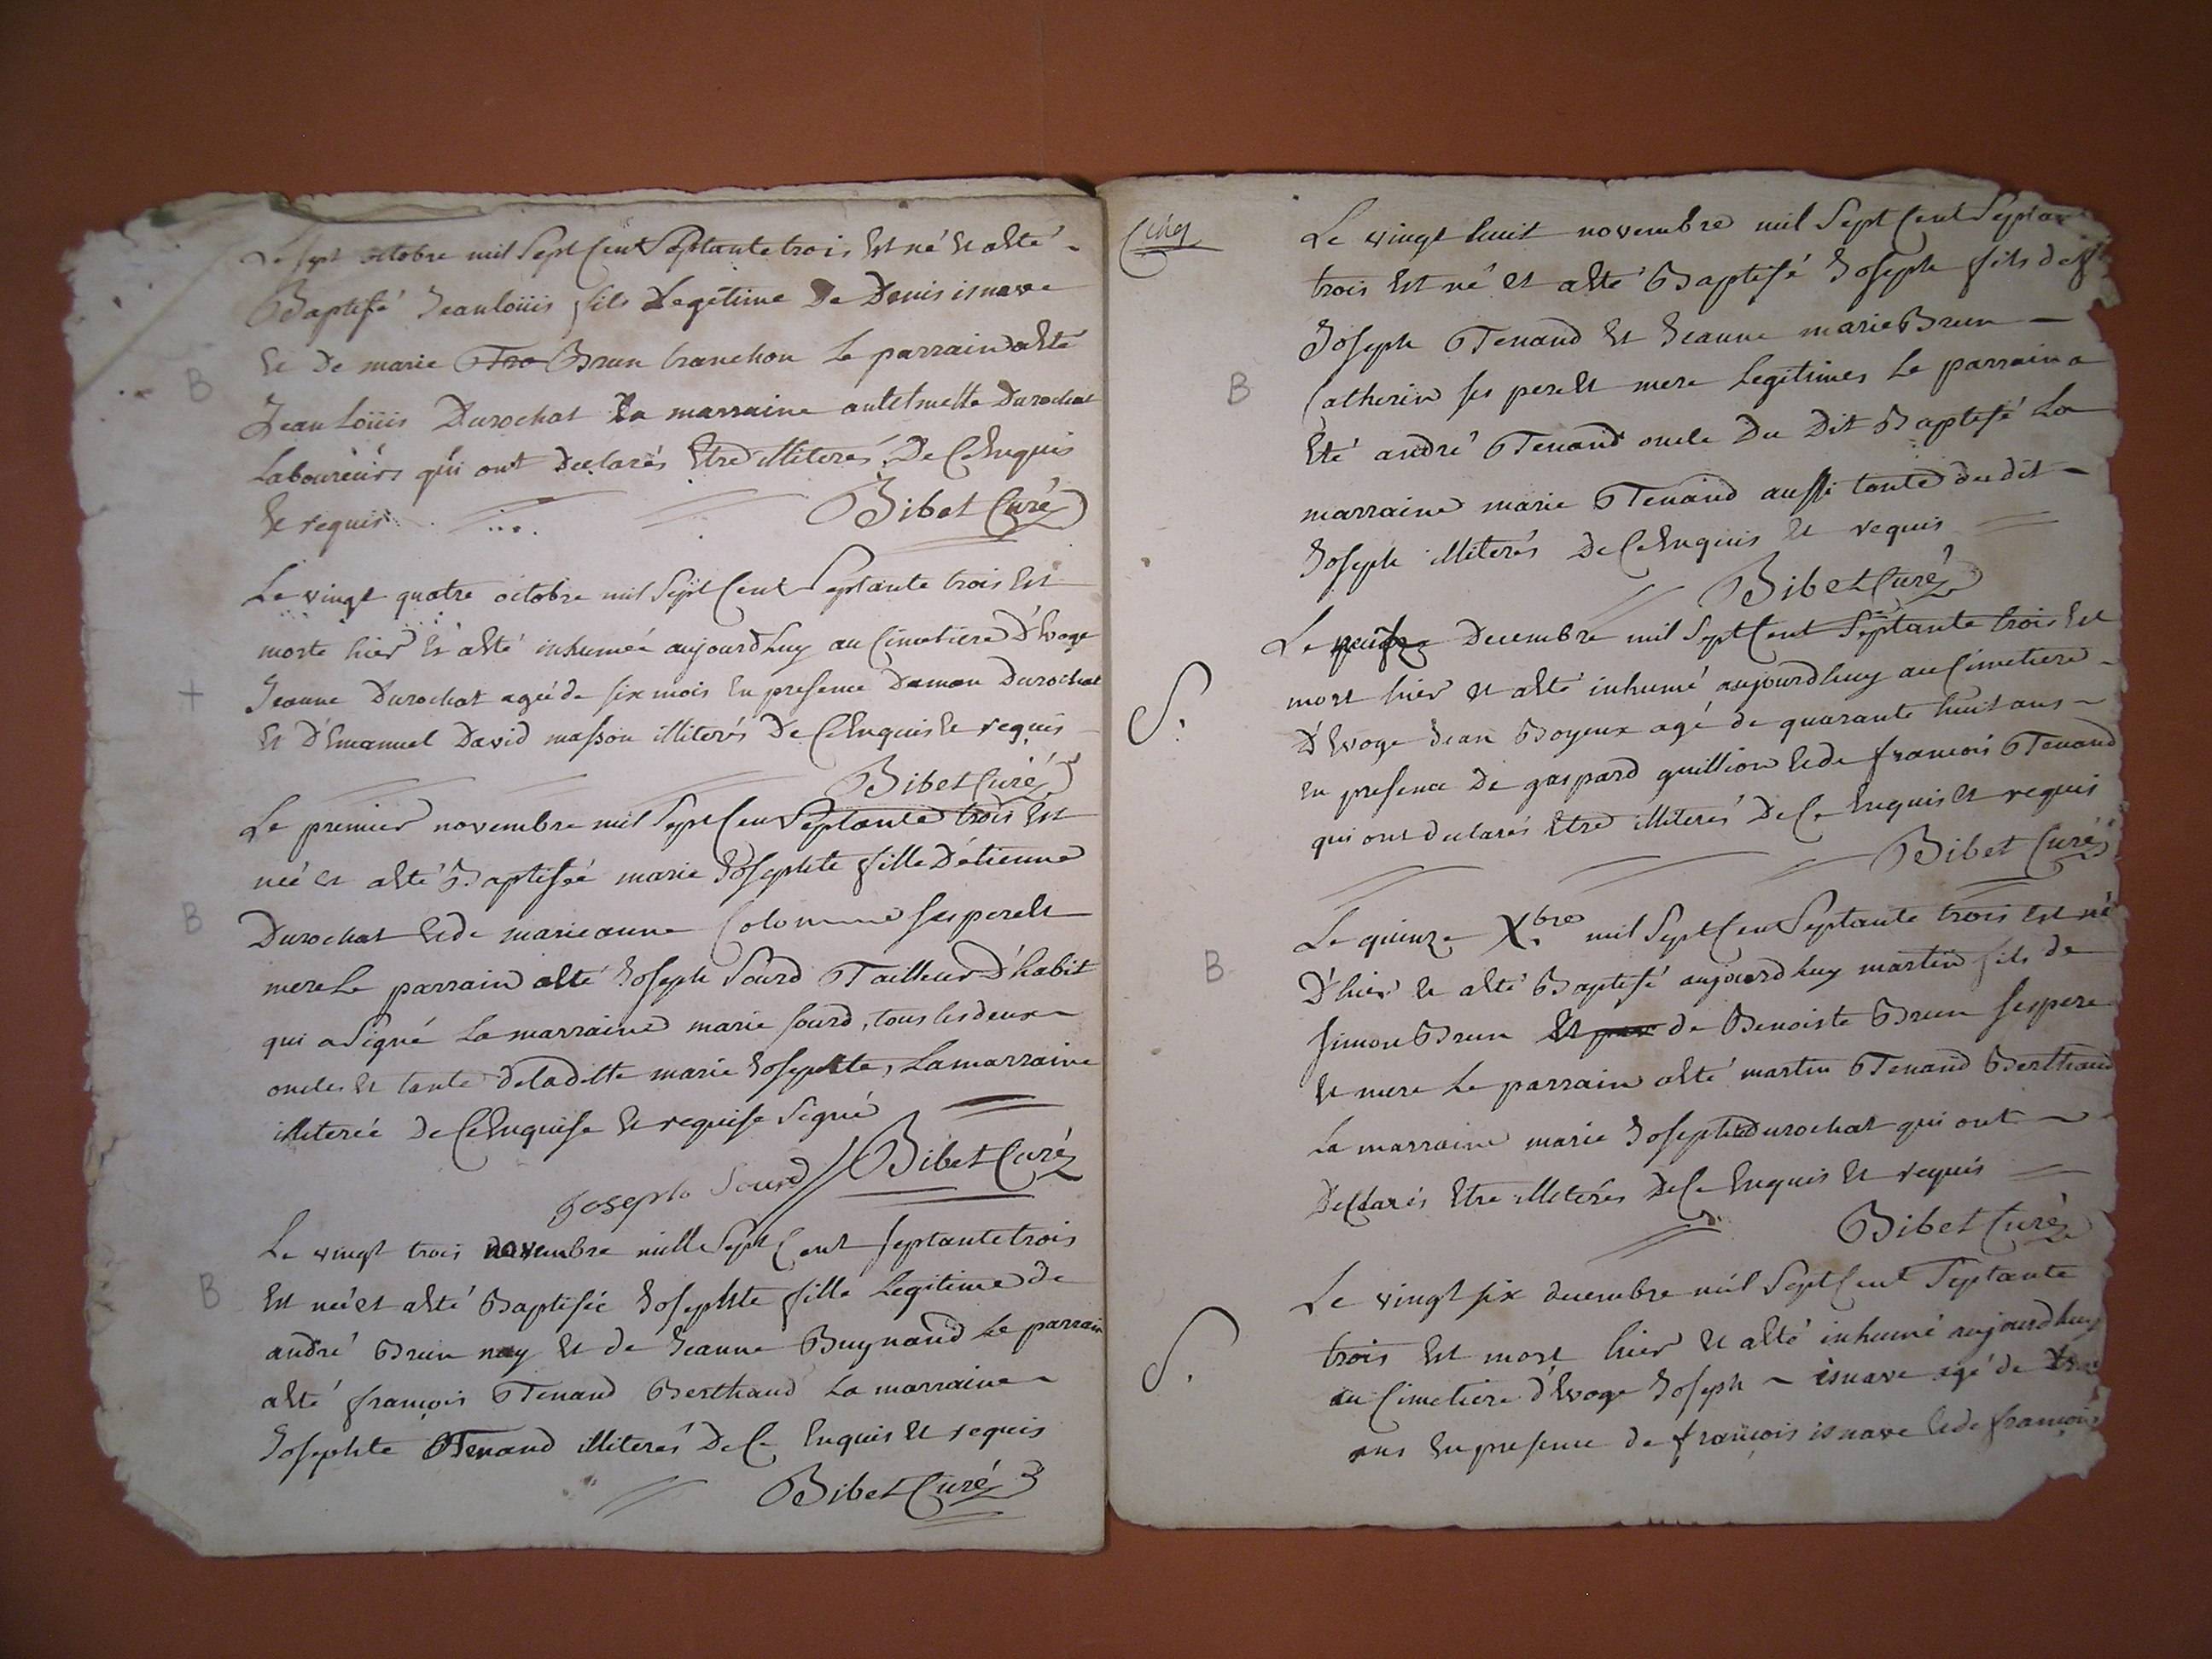 Le sept octobre mil Sept Cent Septante trois Est né Et aEté
Baptisé Jean loüis fils Legitime De Denis isnave
B
Et De marie Tro Brun tranchon Le parrain aEté
Jean Loüis Durochat La marraine Durochat
Laboureurs qui ont Declarés Etre illiterés De Ce Enquis
Et requis Bibet Curé
Le vingt quatre octobre mil Sept Cent Septante trois Est
morte hier Et aEté inhumée aujourdhuy au Cimetiere D'Evoge
+
Jeanne Durochat agée de six mois En presence Durochat
Et D'Emanuel David masson illiterés De Ce Enquis Et requis
Bibet Curé
Le premier novembre mil Sept Cent Septante trois Est
née et aEté Baptisée marie Josephte fille D'étienne
B
Durochat Et de marie anne Colomme ses pere Et
mere Le parrain aEté Joseph Sourd Tailleur D'habit
qui a Signé La marraine marie sourd, tous les deux
oncles Et tante de laditte marie Josephte, La marraine
illiterée De Ce Enquise Et requise Signé
Joseph Sourd Bibet Curé
Le vingt trois novembre mille Sept Cent septante trois
B
Est née et aEté Baptisée Josephte fille Legitime de
andré Brun nay Et de Jeanne Buynand Le parrain
aEté françois Tenand Berthaud La marraine
Josephte Tenand illiterés De Ce Enquis Et requis
Bibet Curé
Cinq
Le vingt huit novembre mil Sept Cent
trois Est né et aEté Baptisé Joseph fils de
Joseph Tenand Et Jeanne marie Brun
B
Catherin ses pere Et mere Legitimes Le parrain a
Eté andré Tenand oncle Du Dit Baptisé La
marraine marie Tenand aussi tante du dit
Joseph illiterés De Ce Enquis Et requis
Bibet Curé
Le Decembre mil Sept Cent Septante trois Est
mort hier Et aEté inhumé aujourdhuy au Cimetiere
S.
D'Evoge Jean Boyeux agé de quarante huit ans
En presence De gaspard guillion Et de francois Tenand
qui ont declarés Etre illiterés De Ce Enquis Et requis
Bibet Curé
Le quinze Xbre mil Sept Cent Septante trois Est né
B
D'hier Et aEté Baptisé aujourdhuy martin fils de
simon Brun Et de Benoiste Brun ses pere
Et mere Le parrain aEté martin Tenand Berthaud
La marraine marie Josephte Durochat qui ont
Declarés Etre illiterés De Ce Enquis Et requis
Bibet Curé
Le vingt six decembre mil Sept Cent Septante
trois Est mort hier Et aEté inhumé aujourdhuy
S.
au Cimetiere d'Evoge Joseph isnave agé de
ans En presence de françois isnave Et de françois